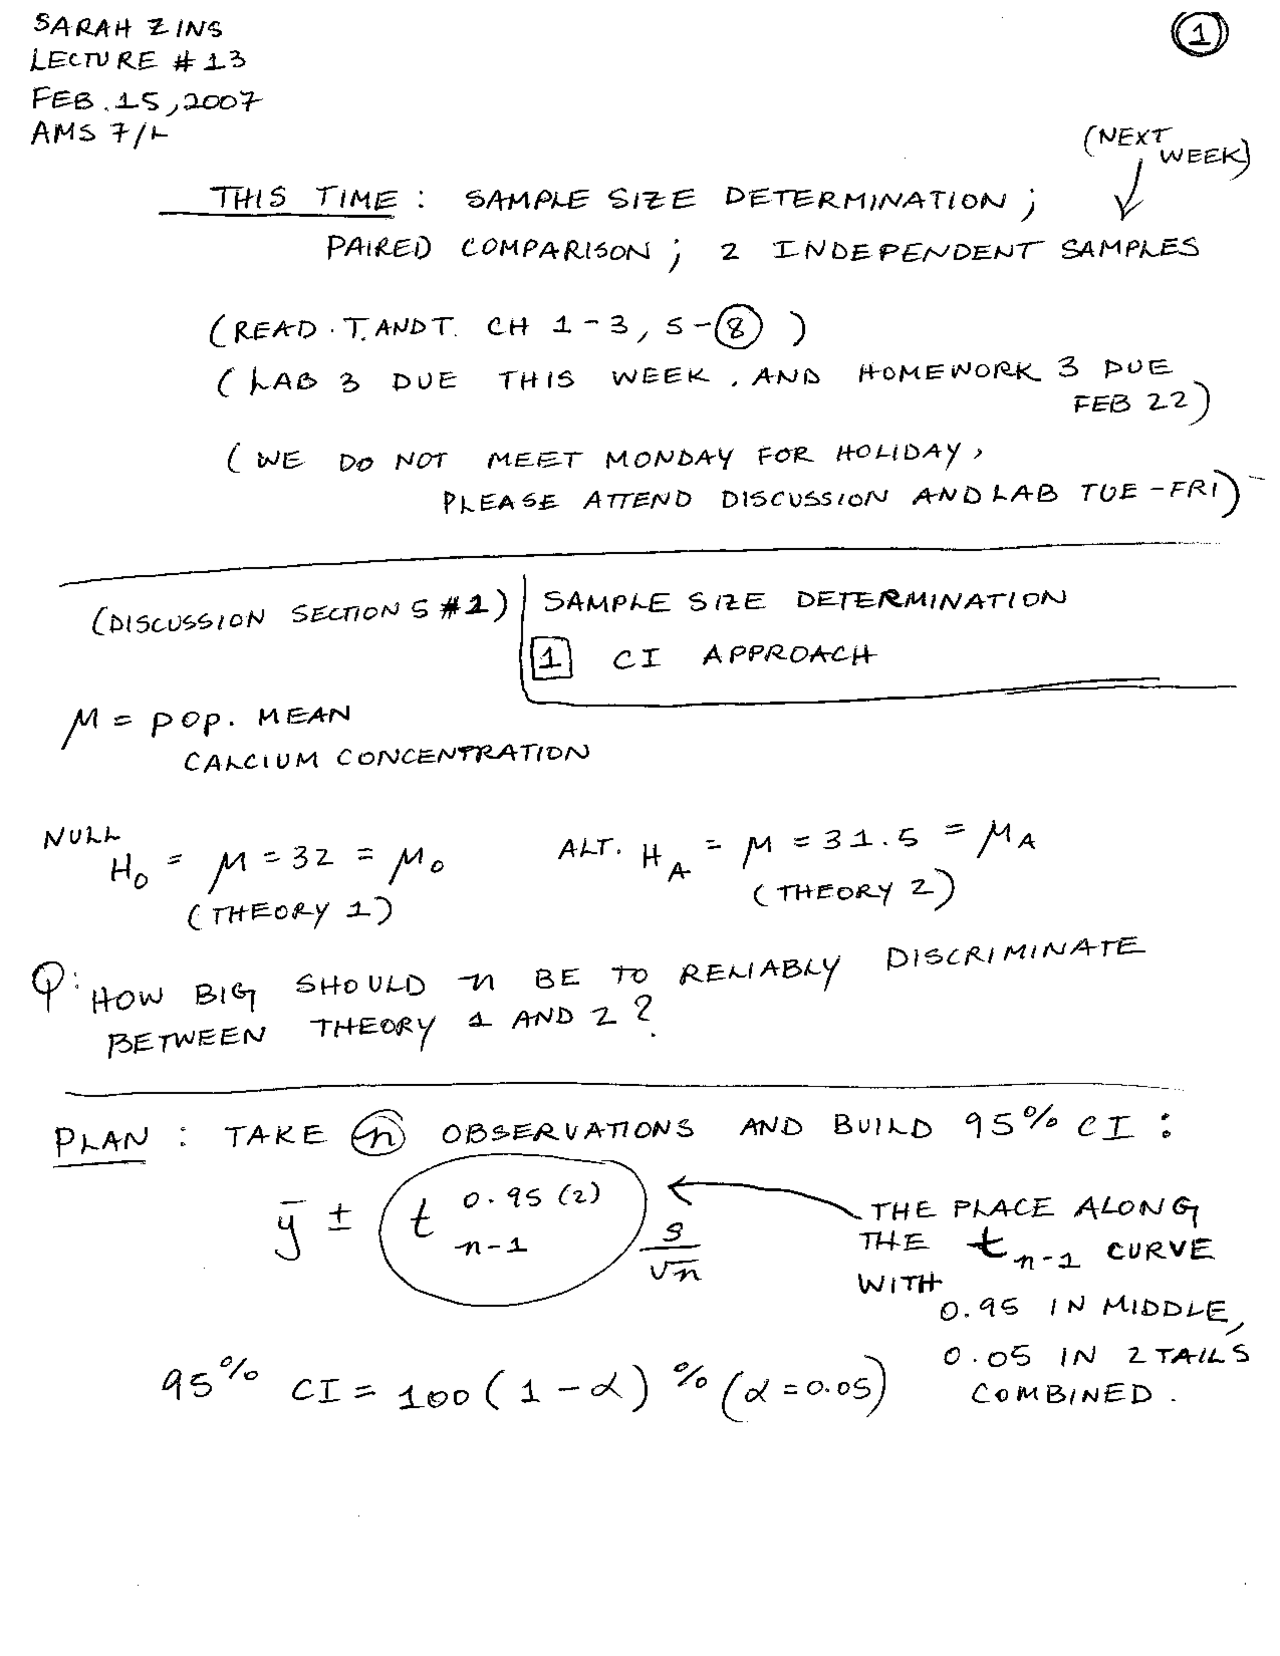 SARAH ZINS
LECTURE # 13
FEB. 15, 2007
AMS 7/L
1
(NEXT WEEK)
THIS TIME : SAMPLE SIZE DETERMINATION ;
PAIRED COMPARISON ; 2 INDEPENDENT SAMPLES
(READ . T. AND T. CH 1-3, 5-8 )
( LAB 3 DUE THIS WEEK . AND HOMEWORK 3 DUE
FEB 22)
( WE DO NOT MEET MONDAY FOR HOLIDAY ,
PLEASE ATTEND DISCUSSION AND LAB TUE-FRI)
(DISCUSSION SECTIONS #1)
SAMPLE SIZE DETERMINATION
1 CI APPROACH
μ = POP. MEAN
CALCIUM CONCENTRATION
NULL
H₀ = μ = 32 = μ₀
(THEORY 1)
ALT. H_A = μ = 31.5 = μ_A
(THEORY 2)
Q: HOW BIG SHOULD n BE TO RELIABLY DISCRIMINATE
BETWEEN THEORY 1 AND 2 ?
PLAN : TAKE n OBSERVATIONS AND BUILD 95% CI :
ȳ ± t_{n-1}^{0.95 (2)} s/√n
THE PLACE ALONG
THE t_{n-1} CURVE
WITH
0.95 IN MIDDLE,
0.05 IN 2 TAILS
COMBINED .
95% CI = 100 ( 1 - α ) % (α = 0.05)